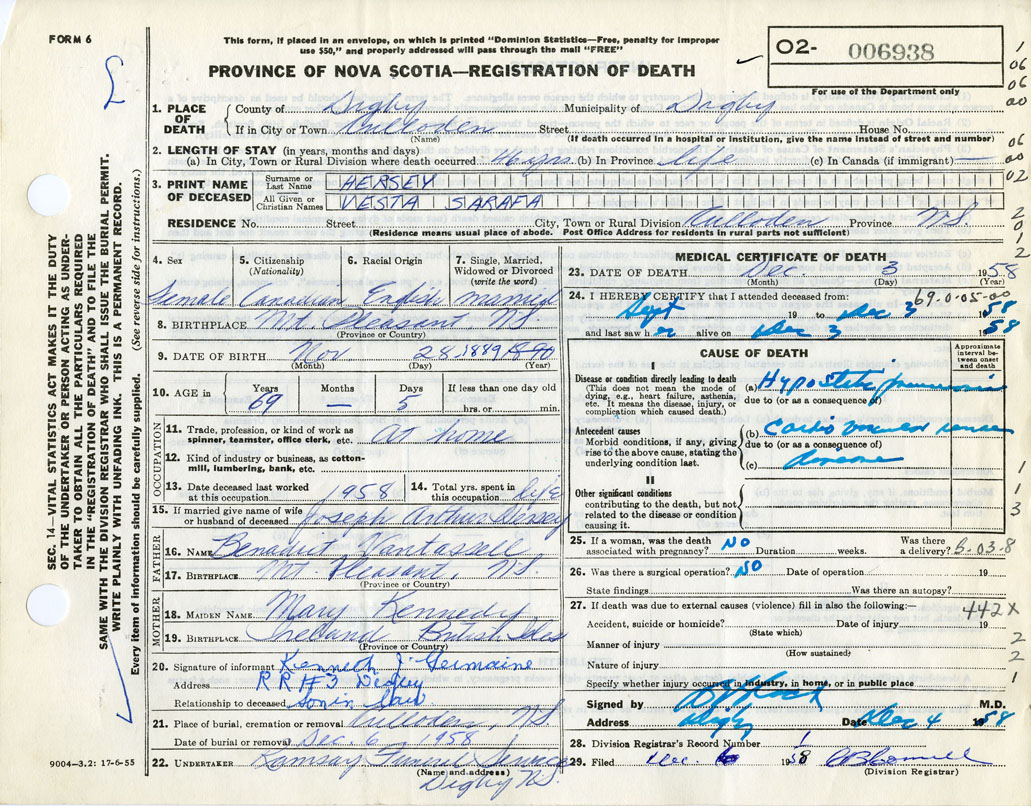 FORM 6
This form, if placed in an envelope, on which is printed "Dominion Statistics—Free, penalty for improper
use $50," and properly addressed will pass through the mail "FREE"
PROVINCE OF NOVA SCOTIA—REGISTRATION OF DEATH
O2- 006938
For use of the Department only
1. PLACE OF DEATH { County of Digby Municipality of Digby
If in City or Town Culloden Street House No.
(Name) (If death occurred in a hospital or institution, give the name instead of street and number)
2. LENGTH OF STAY (in years, months and days)
(a) In City, Town or Rural Division where death occurred 46 yrs. (b) In Province life (c) In Canada (if immigrant) —
3. PRINT NAME OF DECEASED
Surname or Last Name HERSEY
All Given or Christian Names VESTA SARAFA
RESIDENCE No. Street City, Town or Rural Division Culloden Province N.S.
(Residence means usual place of abode. Post Office Address for residents in rural parts not sufficient)
4. Sex 5. Citizenship (Nationality) 6. Racial Origin 7. Single, Married, Widowed or Divorced (write the word)
Female Canadian English married
8. BIRTHPLACE Mt. Pleasant, N.S.
(Province or Country)
9. DATE OF BIRTH Nov 28 1889 1890
(Month) (Day) (Year)
10. AGE in Years Months Days If less than one day old
69 — 5 hrs. or min.
OCCUPATION
11. Trade, profession or kind of work as spinner, teamster, office clerk, etc. At home
12. Kind of industry or business, as cotton-mill, lumbering, bank, etc.
13. Date deceased last worked at this occupation 1958 14. Total yrs. spent in this occupation life
15. If married give name of wife or husband of deceased Joseph Arthur Hersey
FATHER
16. NAME Benedict Vantassell
17. BIRTHPLACE Mt. Pleasant, N.S.
(Province or Country)
MOTHER
18. MAIDEN NAME Mary Kennedy
19. BIRTHPLACE Ireland British Isles
(Province or Country)
20. Signature of informant Kenneth J Germaine
Address R R #3 Digby
Relationship to deceased son in law
21. Place of burial, cremation or removal Culloden, N.S.
Date of burial or removal Dec. 6, 1958
22. UNDERTAKER Ramsay Funeral Service
(Name and address) Digby N.S.
MEDICAL CERTIFICATE OF DEATH
23. DATE OF DEATH Dec. 3 1958
(Month) (Day) (Year)
69-0-05-00
24. I HEREBY CERTIFY that I attended deceased from:
Sept 19 to Dec 3 1958
and last saw her alive on Dec 3 1958
CAUSE OF DEATH
Approximate interval between onset and death
I
Disease or condition directly leading to death (a) Hypostatic pneumonia
(This does not mean the mode of dying, e.g., heart failure, asthenia, etc. It means the disease, injury, or complication which caused death.)
due to (or as a consequence of)
Antecedent causes (b) Cardio vascular renal
Morbid conditions, if any, giving rise to the above cause, stating the underlying condition last.
due to (or as a consequence of)
(c) disease
II
Other significant conditions contributing to the death, but not related to the disease or condition causing it.
25. If a woman, was the death associated with pregnancy? NO Duration weeks. Was there a delivery? 5-03-8
26. Was there a surgical operation? NO Date of operation 19
State findings Was there an autopsy?
27. If death was due to external causes (violence) fill in also the following:— 442X
Accident, suicide or homicide? Date of injury 19
(State which)
Manner of injury
(How sustained)
Nature of injury
Specify whether injury occurred in industry, in home, or in public place
Signed by M.D.
Address Digby Date Dec 4 1958
28. Division Registrar's Record Number 1
29. Filed Dec. 6 1958
(Division Registrar)
SEC. 14—VITAL STATISTICS ACT MAKES IT THE DUTY
OF THE UNDERTAKER OR PERSON ACTING AS UNDER-
TAKER TO OBTAIN ALL THE PARTICULARS REQUIRED
IN THE "REGISTRATION OF DEATH" AND TO FILE THE
SAME WITH THE DIVISION REGISTRAR WHO SHALL ISSUE THE BURIAL PERMIT.
WRITE PLAINLY WITH UNFADING INK. THIS IS A PERMANENT RECORD.
Every item of information should be carefully supplied. (See reverse side for instructions.)
9004—3.2: 17-6-55
1
06
06
00
06
00
02
2
0
1
2
1
1
3
2
2
1